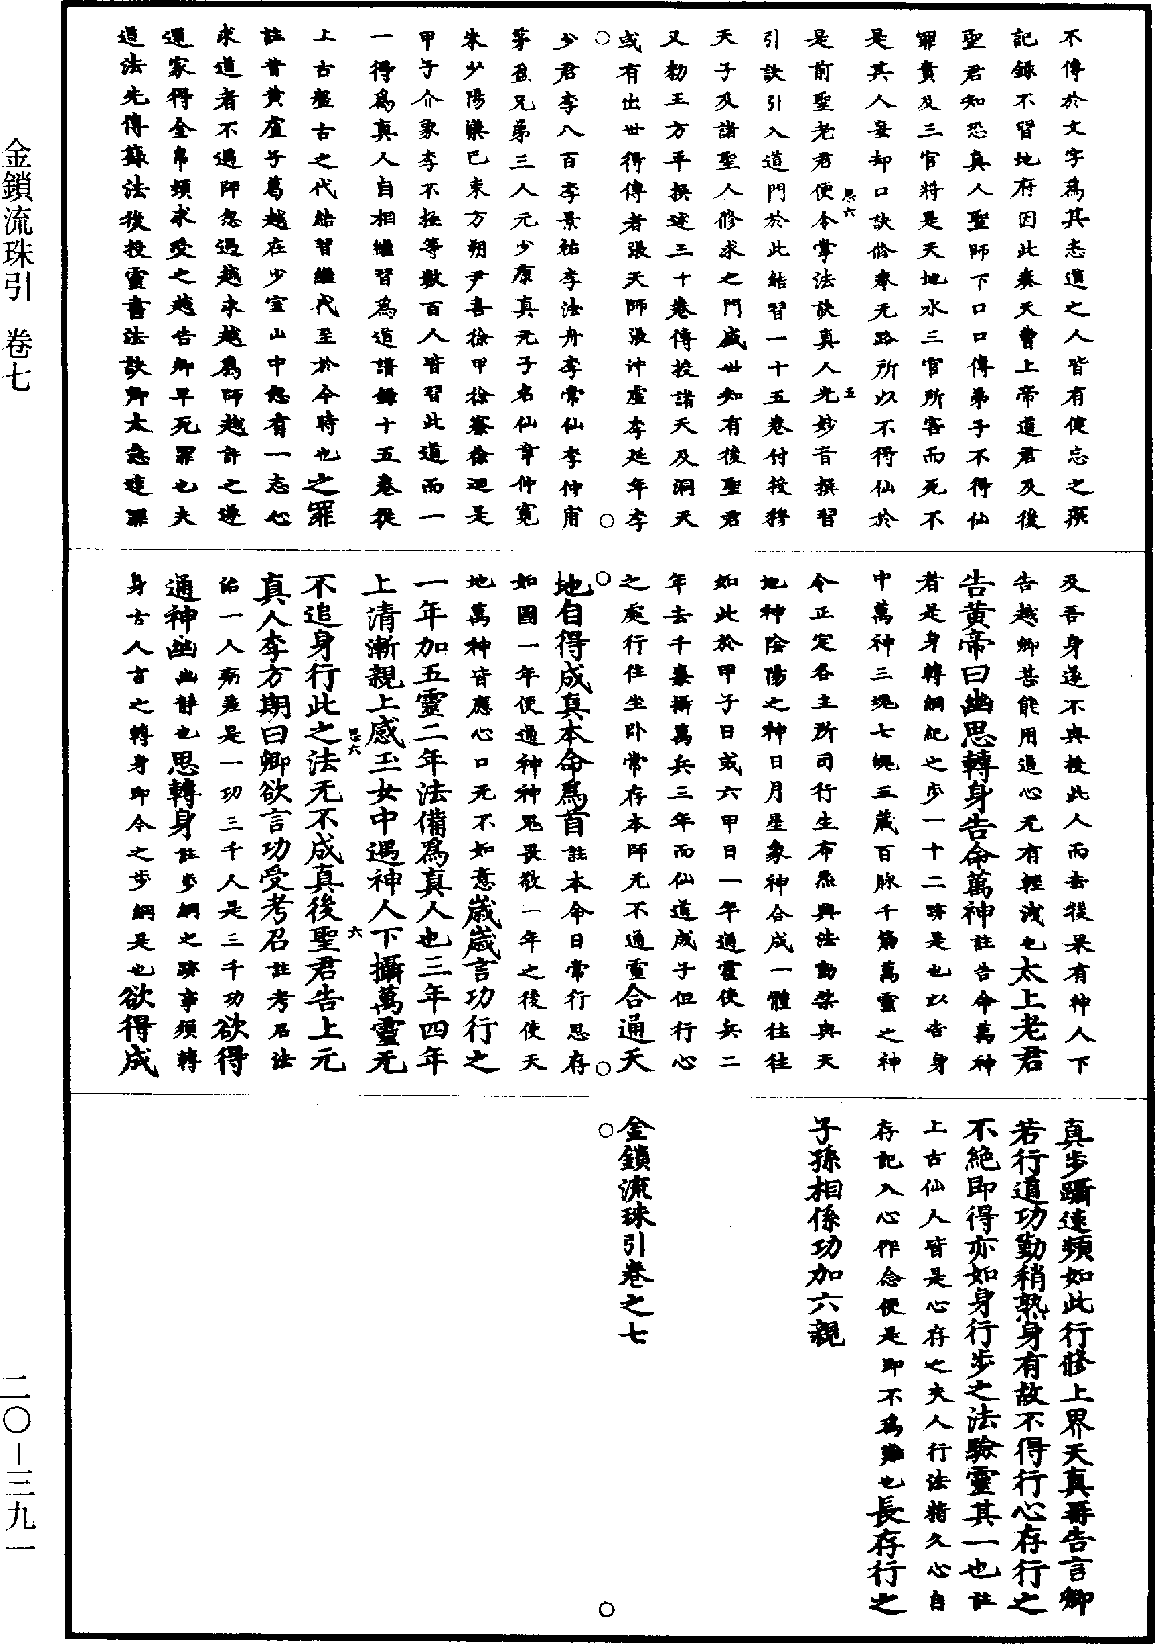 金鎖流珠引 卷七
二〇-三九一
不傳於文字爲其志道之人皆有使忘之撰
記錄不習地府因此奏天曹上帝道君及後
聖君知恐真人聖師下口口傳弟子不得仙
罪責及三官將是天地水三官所害而死不
是其人妄却口訣俗奉无路所以不得仙於
是前聖老君便令掌法訣真人光妙音撰習
引訣引入道門於此結習一十五卷付授穆
天子及諸聖人修求之門盛世知有後聖君
又勑王方平撰述三十卷傳授諸天及洞天
或有出世得傳者張天師張沖虛李延年李
少君李八百李景祐李法舟李常仙李仲甫
茅盈兄弟三人元少康真元子名仙章仲寬
朱少陽欒巴東方朔尹喜徐甲徐審徐迴是
甲子介象李不極等數百人皆習此道而一
一得爲真人自相繼習爲道譜錄十五卷從
上古盤古之代結習繼代至於今時也之罪
註昔黄虛子葛越在少室山中忽有一志心
求道者不遇師忽遇越求越爲師越許之遂
還家得金帛頻求受之越告卿早死罪也夫
道法先傳籙法後授靈書法訣卿太急速罪
及吾身遂不與授此人而去後果有神人下
告越卿甚能用過心无有輕洩也太上老君
告黄帝曰幽思轉身告命萬神註告命萬神
者是身轉綱紀之步一十二跡是也以告身
中萬神三魂七魄五藏百脉千筋萬靈之神
令正定各主所司行生布炁興法動禁與天
地神陰陽之神日月星象神合成一體往往
如此於甲子日或六甲日一年通靈使兵二
年去千乗攝萬兵三年而仙道成子但行心
之處行住坐卧常存本師无不通靈合通天
地自得成真本命爲首註本命日常行思存
如圖一年便通神神鬼畏敬一年之後使天
地萬神皆應心口无不如意歲歲言功行之
一年加五靈二年法備爲真人也三年四年
上清漸親上感玉女中遇神人下攝萬靈无
不追身行此之法无不成真後聖君告上元
真人李方期曰卿欲言功受考召註考召法
治一人瘹差是一功三千人是三千功欲得
通神幽幽靜也思轉身註步綱之跡事須轉
身古人言之轉身即今之步綱是也欲得成
真步躡速頻如此行修上界天真哥告言卿
若行道功勤稍熟身有故不得行心存行之
不絶即得亦如身行步之法驗靈其一也註
上古仙人皆是心存之夫人行法稍久心自
存記入心作念便是即不爲難也長存行之
子孫相係功加六親
金鎖流珠引卷之七